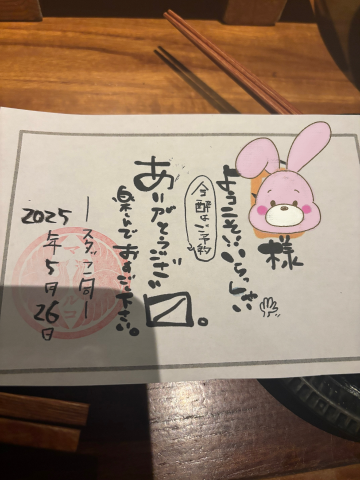 様
ようこそ!!いらっしゃい
今宵はご予約
ありがとうござい〼。
楽しんでおすごし下さい。
ースタッフ一同ー
2025年5月26日